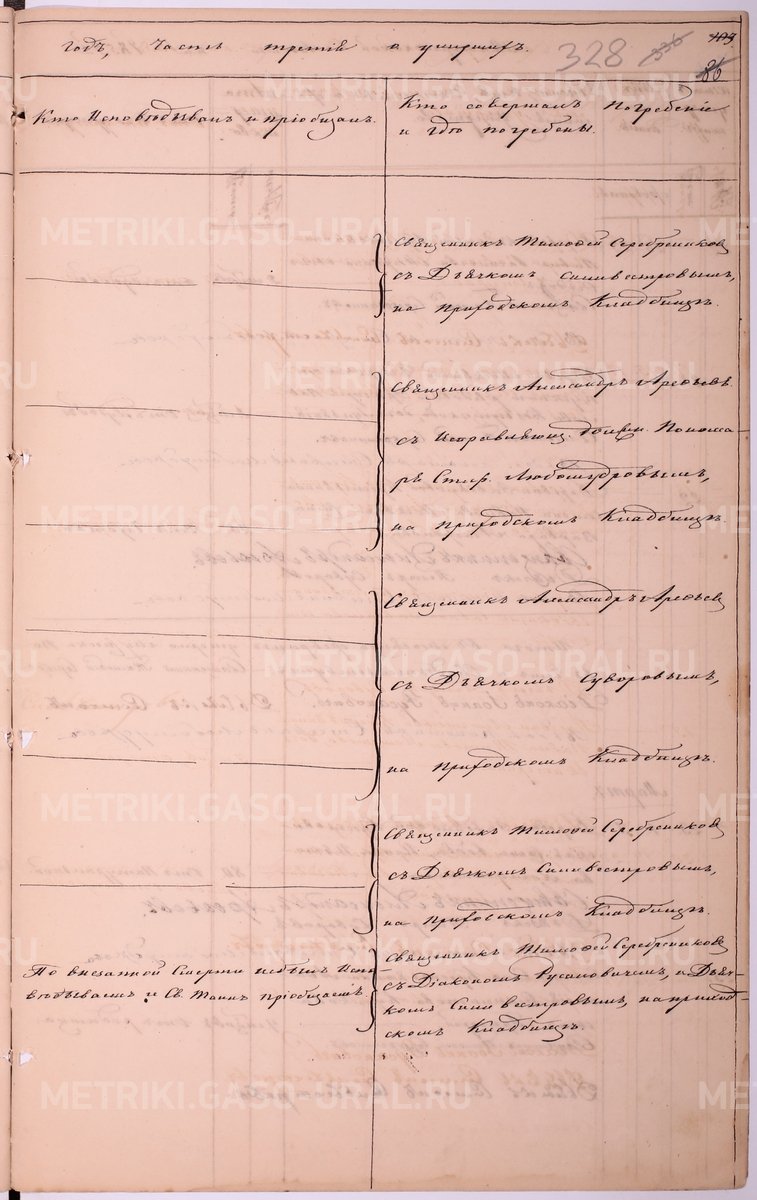 годъ, Часть третія о умершихъ.
328 336 103
86
Кто Исповѣдывалъ и пріобщалъ.
Кто совершалъ Погребеніе
и гдѣ погребены.
Священникъ Тимофей Серебрениковъ
съ Дьячкомъ Силивестровымъ,
на Приходскомъ Кладбищѣ.
Священникъ Александръ Арефьевъ.
съ Исправляющ. должн. Понома-
ря Стеф. Любомудровымъ,
на Приходскомъ Кладбищѣ.
Священникъ Александръ Арефьевъ
съ Дьячкомъ Суворовымъ,
на Приходскомъ Кладбищѣ.
Священникъ Тимофей Серебрениковъ
съ Дьячкомъ Силивестровымъ,
на Приходскомъ Кладбищѣ.
По внезапной Смерти небылъ Испо-
вѣдываемъ и Св. Таинъ пріобщаемъ.
Священникъ Тимофей Серебрениковъ
съ Діакономъ Русановичемъ, и Дьяч-
комъ Силивестровымъ, на приход-
скомъ Кладбищѣ.
METRIKI.GASO-URAL.RU